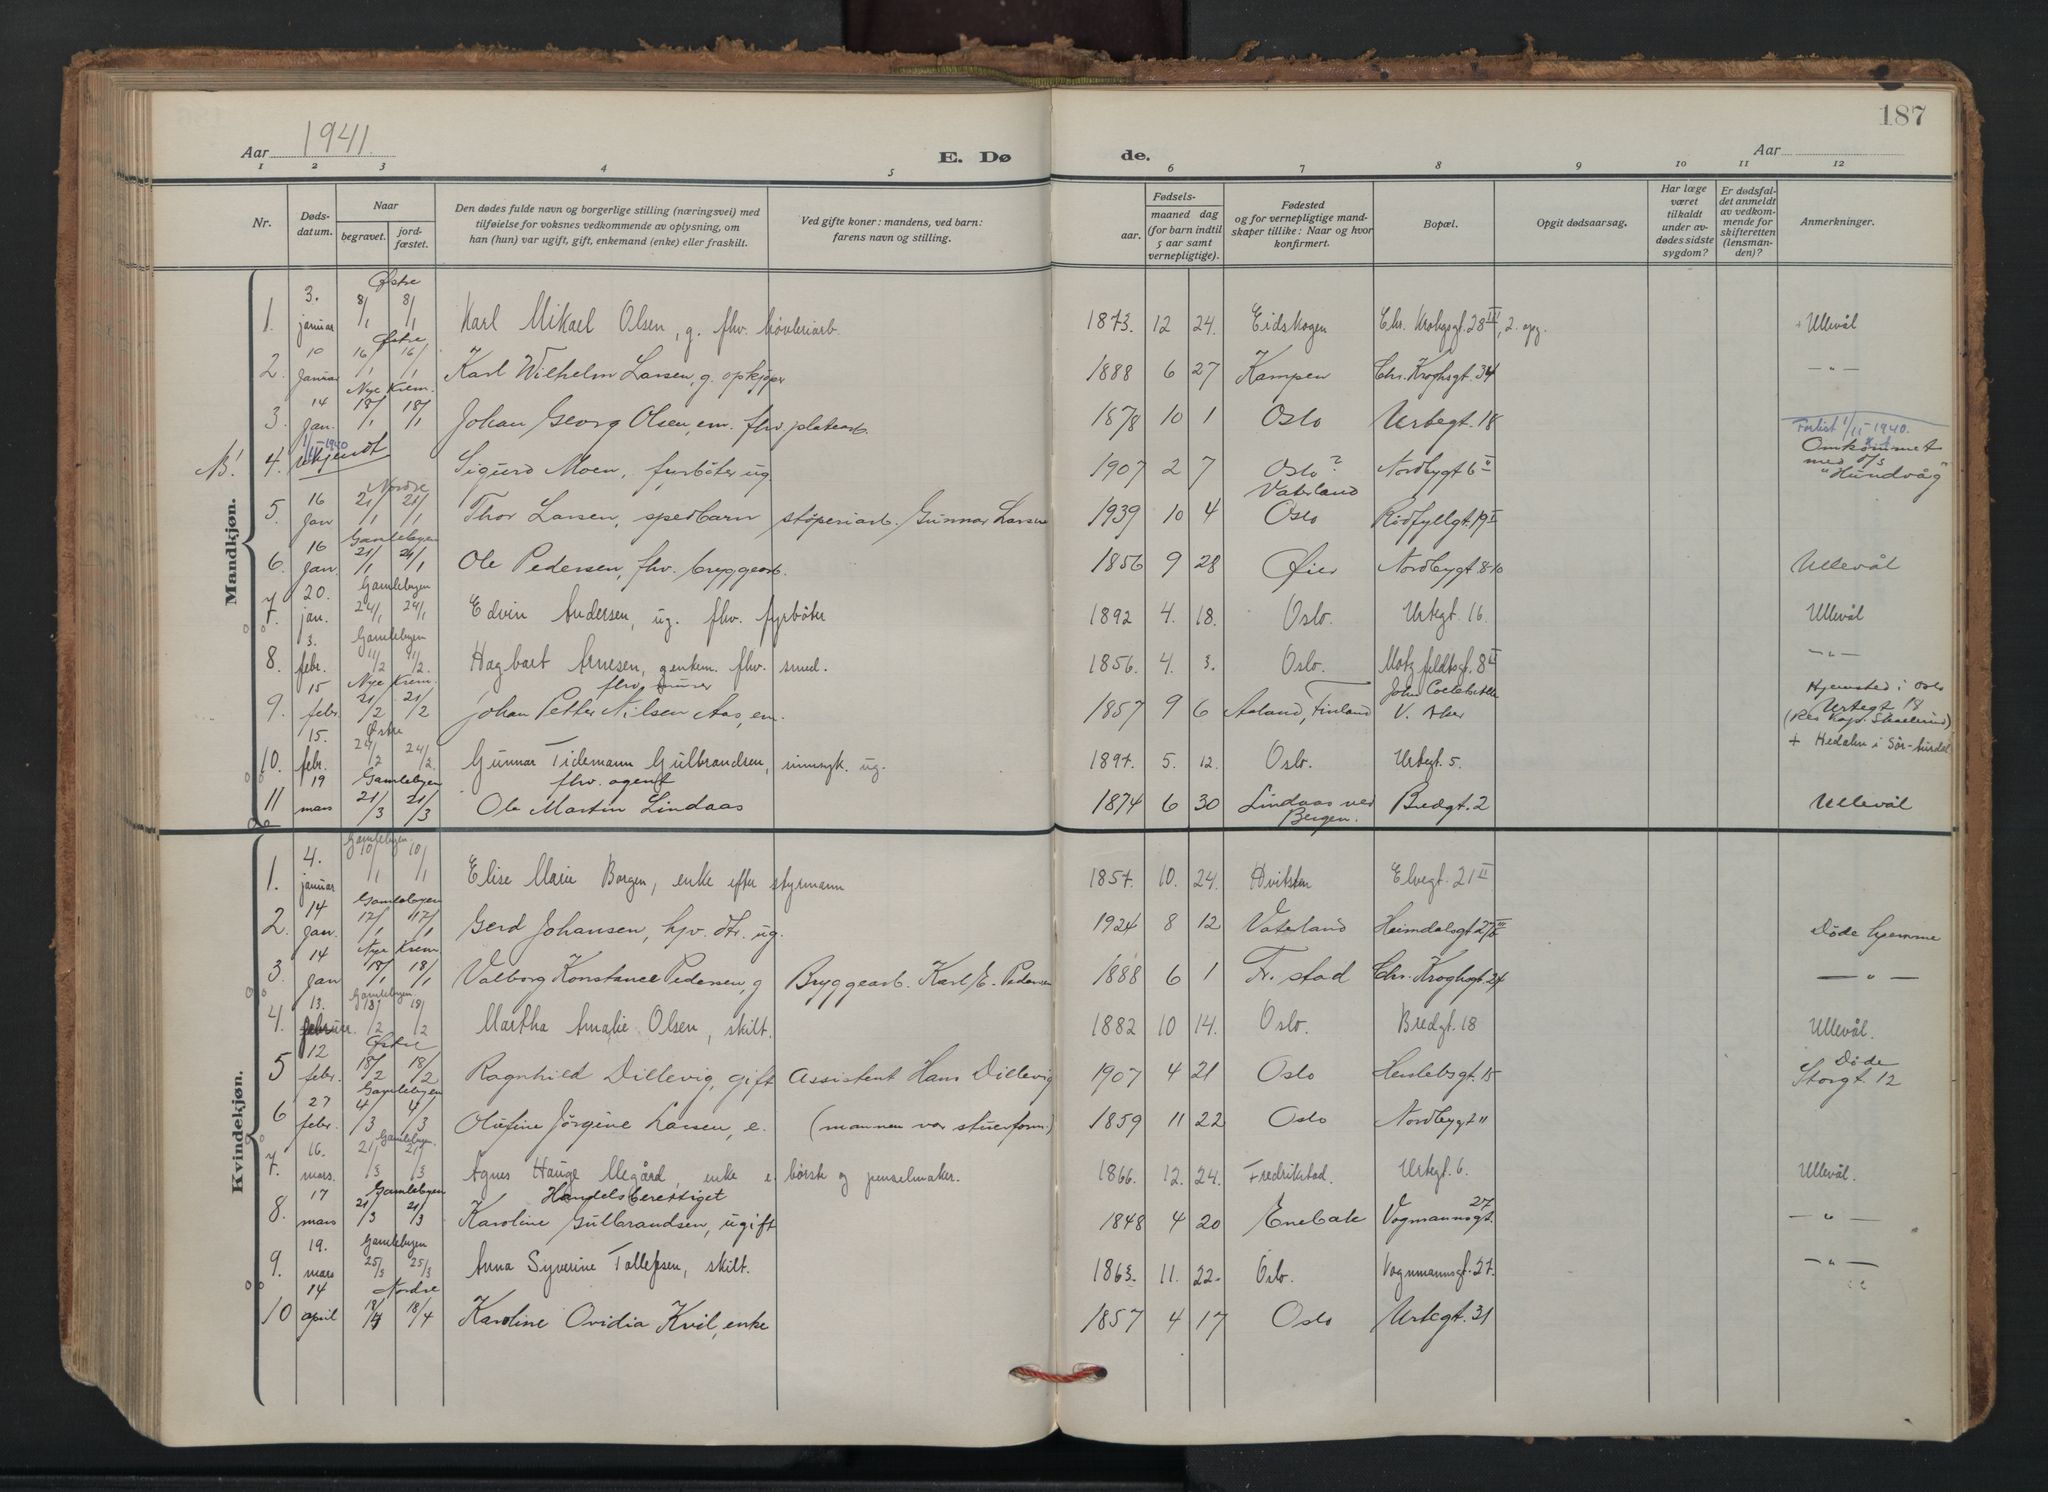 187
Aar 1941. E. Døde. Aar
1 2 3 4 5 6 7 8 9 10 11 12
Nr. Døds-datum. Naar begravet. jord-fæstet. Den dødes fulde navn og borgerlige stilling (næringsvei) med tilføielse for voksnes vedkommende av oplysning, om han (hun) var ugift, gift, enkemand (enke) eller fraskilt. Ved gifte koner: mandens, ved barn: farens navn og stilling. Fødsels- aar. maaned dag (for barn indtil 5 aar samt vernepligtige). Fødested og for vernepligtige mandskaper tillike: Naar og hvor konfirmert. Bopæl. Opgit dødsaarsag. Har læge været tilkaldt under avdødes sidste sygdom? Er dødsfaldet anmeldt av vedkommende for skifteretten (lensmanden)? Anmerkninger.
Mandkjøn.
Østre
1. 3. januar 8/1 8/1 Karl Mikael Olsen, g. fhv. høvleriarb. 1873. 12 24. Eidskogen Chr. Krohgsgt. 28 III, 2. opg. + Ullevål
Østre
2. 10 Januar 16/1 16/1 Karl Wilhelm Larsen, g. opkjøper 1888 6 27 Kampen Chr. Kroghsgt. 34 — „ —
Nye Krem.
3. 14 Jan. 18/1 18/1 Johan Georg Olsen, em. fhv. platearb. 1878 10 1 Oslo Urtegt. 18
N! 4. 1/11-1940 Ukjendt Sigurd Moen, fyrbøter ug. 1907 2 7 Oslo? Nordbygt 6 II Forlist 1/11-1940. Omkommet med d/s "Hundvåg"
Nordre
5. 16 Jan 21/1 21/1 Thor Larsen, spedbarn støperiarb. Gunnar Larsen 1939 10 4 Vaterland Oslo Rødfyllgt. 19 I
Gamlebyen
6. 16 Jan. 21/1 21/1 Ole Pedersen, fhv. bryggearb. 1856 9 28 Øier Nordbygt. 8-10 Ullevål
Gamlebyen
7. 20. jan. 24/1 24/1 Edvin Andersen, ug. fhv. fyrbøter 1892 4. 18. Oslo. Urtegt. 16. Ullevål
Gamlebyen
8. 3. febr. 11/2 11/2. Hagbart Arnesen, enkem. fhv. smed. 1856. 4. 3. Oslo. Motzfeldtsgt. 8 II — „ —
Nye Krem.
9. 15 febr. 21/2 21/2 fhv. murer Johan Petter Nilsen Aas, em. 1857 9 6 Aaland, Finland John Colletts Allé V. Aker Hjemsted i Oslo Urtegt 18
Østre
10. 15. febr. 24/2 24/2. Gunnar Tidemann Gulbrandsen, sinnsyk. ug. 1897. 5. 12. Oslo. Urtegt. 5. + Hedalen i Sør-Aurdal
Gamlebyen
11 19 mars 21/3 21/3 fhv. agent Ole Martin Lindaas 1874 6 30 Lindaas ved Bergen. Bredgt. 2 Ullevål
Kvindekjøn.
Gamlebyen
1. 4. januar 10/1 10/1 Elise Marie Borgen, enke efter styrmann 1857. 10. 24. Hvitsten Elvegt. 21 II
Gamlebyen
2. 14 Jan. 17/1 17/1 Gerd Johansen, hjv. dtr. ug. 1924 8 12 Vaterland Heimdalsgt 27 III Døde hjemme
Nye Krem
3. 14 Jan 18/1 18/1 Valborg Konstance Pedersen, g Bryggearb. Karl E. Pedersen 1888 6 1 Fr. stad Chr. Kroghsgt. 24 — „ —
Gamlebyen
4. 13. februar. 18/2 18/2 Martha Amalie Olsen, skilt. 1882 10 14. Oslo. Bredgt. 18 Ullevål.
Østre
5 12 febr. 18/2 18/2 Ragnhild Dillevig, gift Assistent Hans Dillevig 1907 4 21 Oslo Herslebsgt. 15 Døde Storgt. 12
Gamlebyen
6 27 febr. 4/3 4/3 Olufine Jørgine Larsen, e. (mannen var stuerform.) 1859 11 22 Oslo Nordbygt 11
Gamlebyen.
7. 16. mars. 21/3 21/3 Agnes Hauge Megård, enke e. børste og penselmaker. 1866. 12. 24. Fredrikstad. Urtegt. 6. Ullevål.
Gamlebyen
8. 17 mars 21/3 21/3 Handelsberettiget Karoline Gulbrandsen, ugift 1848 4 20 Enebak Vognmannsgt. 27 — „ —
Gamlebyen
9. 19. mars 25/3 25/3 Anna Syverine Tollefsen, skilt. 1863. 11. 22. Oslo. Vognmannsgt. 27. — „ —
Nordre
10 14 april 18/4 18/4 Karoline Ovidia Kvil, enke 1857 4 17 Oslo Urtegt. 31